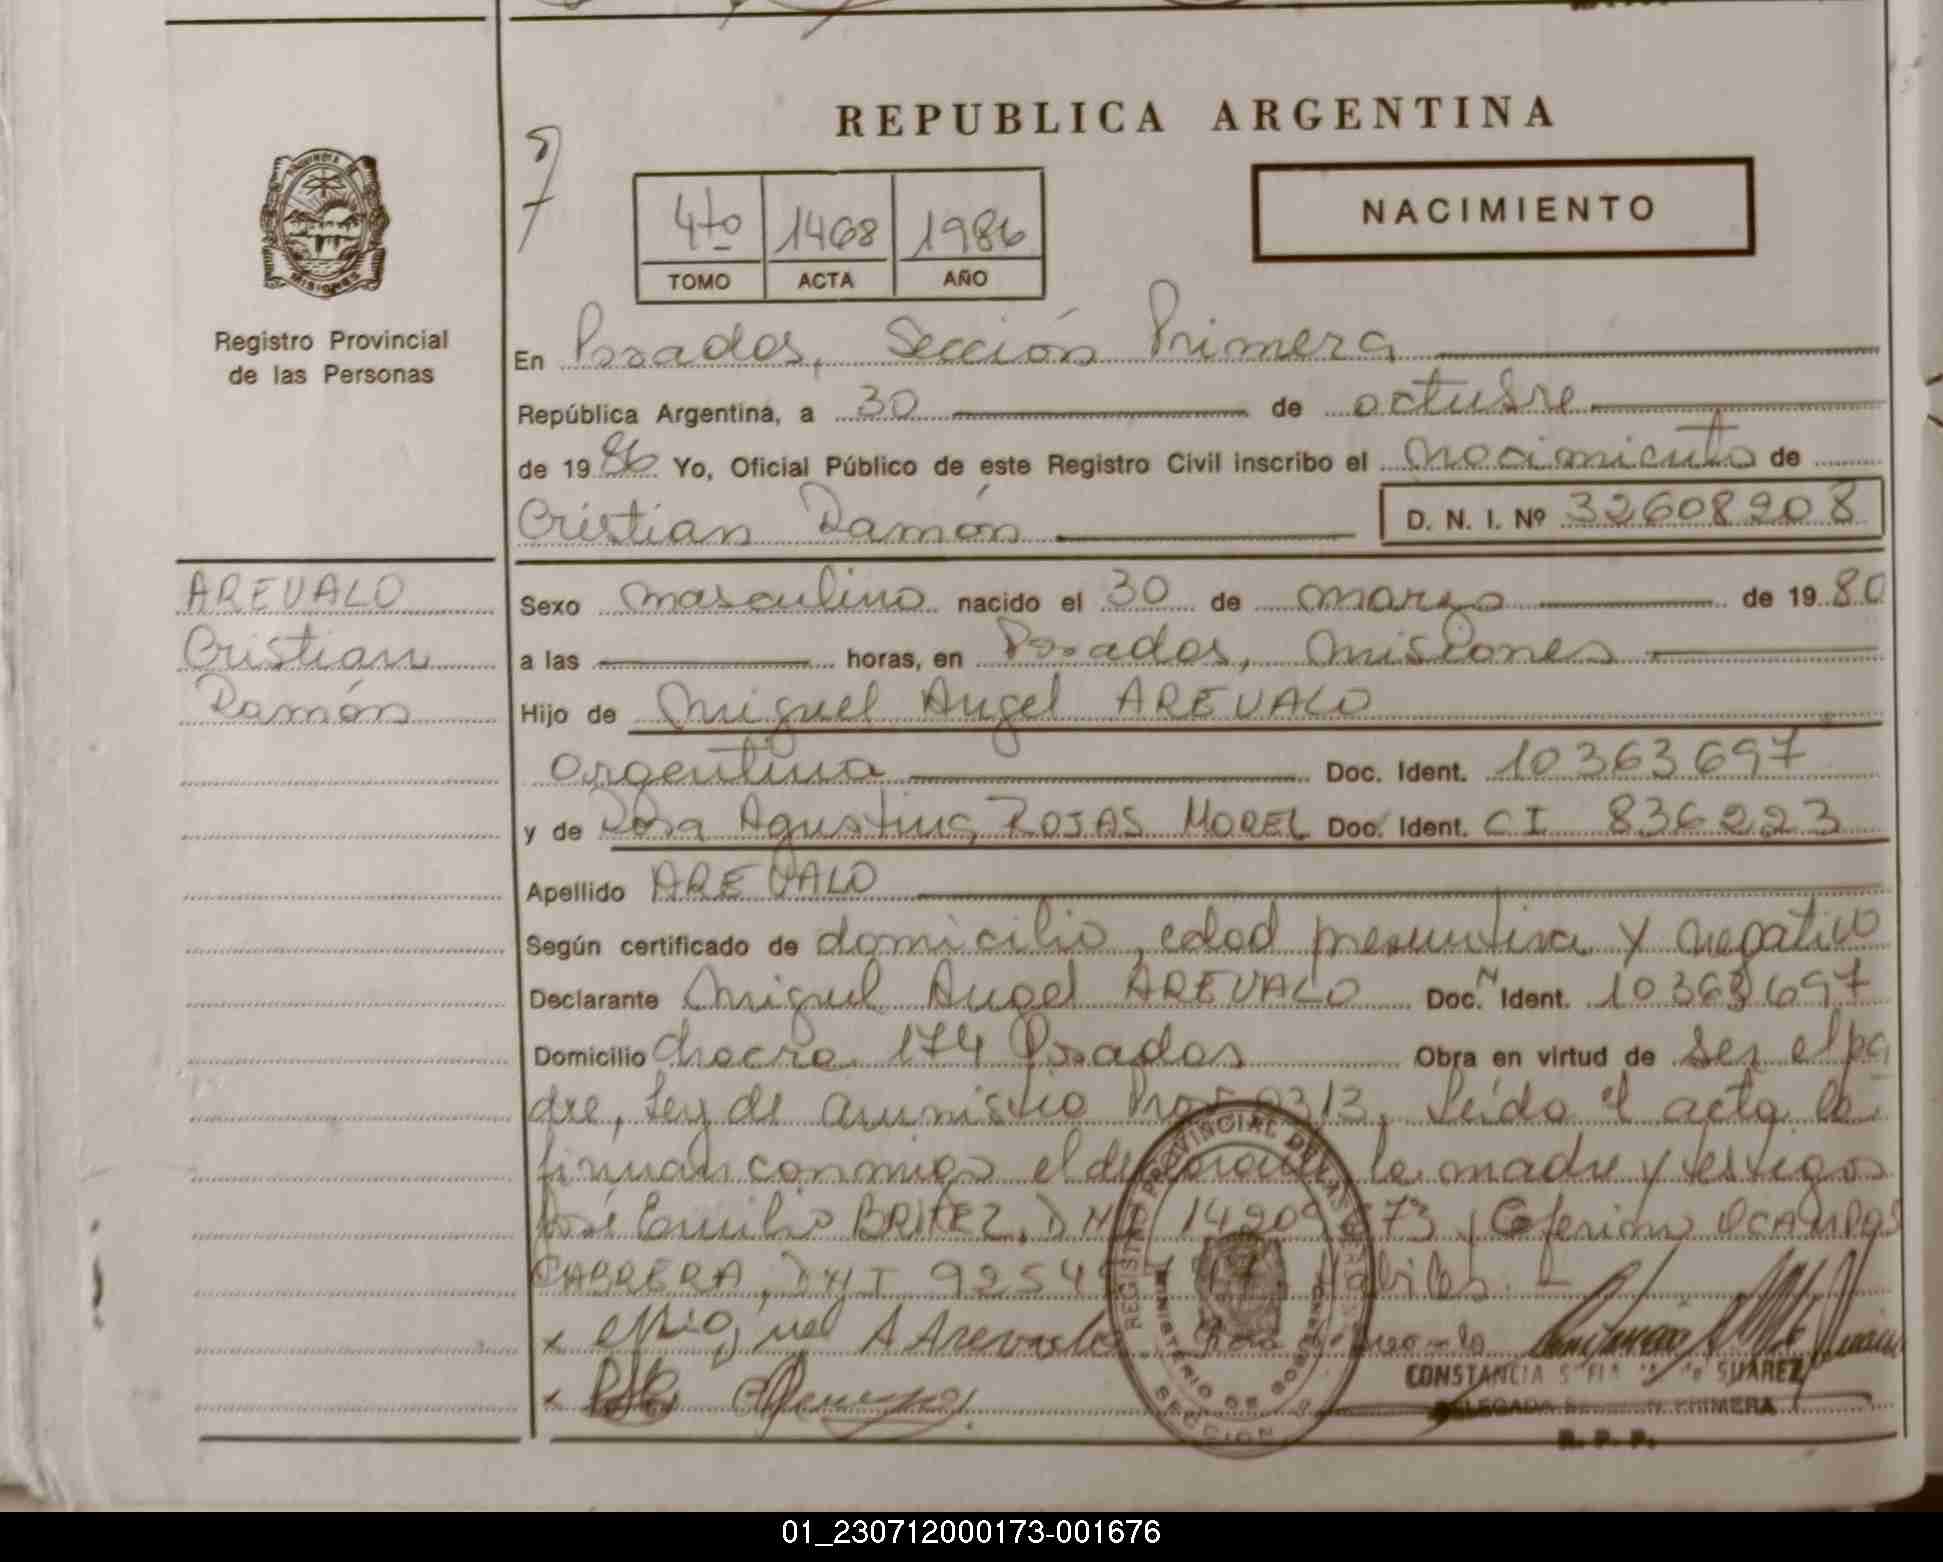 REPUBLICA ARGENTINA
NACIMIENTO
4to 1468 1986
TOMO ACTA AÑO
PROVINCIA
MISIONES
Registro Provincial
de las Personas
En Posadas, Sección Primera
República Argentina, a 30 de octubre
de 1986 Yo, Oficial Público de este Registro Civil inscribo el nacimiento de
Cristian Ramón D. N. I. Nº 32608208
AREVALO
Cristian
Ramón
Sexo masculino nacido el 30 de marzo de 1980
a las horas, en Posadas, Misiones
Hijo de Miguel Angel AREVALO
Argentina Doc. Ident. 10363697
y de Rosa Agustina ROJAS MOREL Doc. Ident. CI 836223
Apellido AREVALO
Según certificado de domicilio, edad presuntiva y negativo
Declarante Miguel Angel AREVALO Doc. Ident. 10363697
Domicilio Chacra 174 Posadas Obra en virtud de ser el pa
dre, Ley de amnistia Leída el acta la
firman conmigo el declarante la madre y testigos
José Emilio BRITEZ, DNI 14209 73 y Ceferino OCAMPOS
CABRERA, DNI 9254 Hábiles.
x Miguel A Arevalo
x
REGISTRO PROVINCIAL DE LAS PERSONAS
MINISTERIO DE GOBIERNO
SECCION
CONSTANCIA SUAREZ
DELEGADA PRIMERA
R. P. P.
01_230712000173-001676